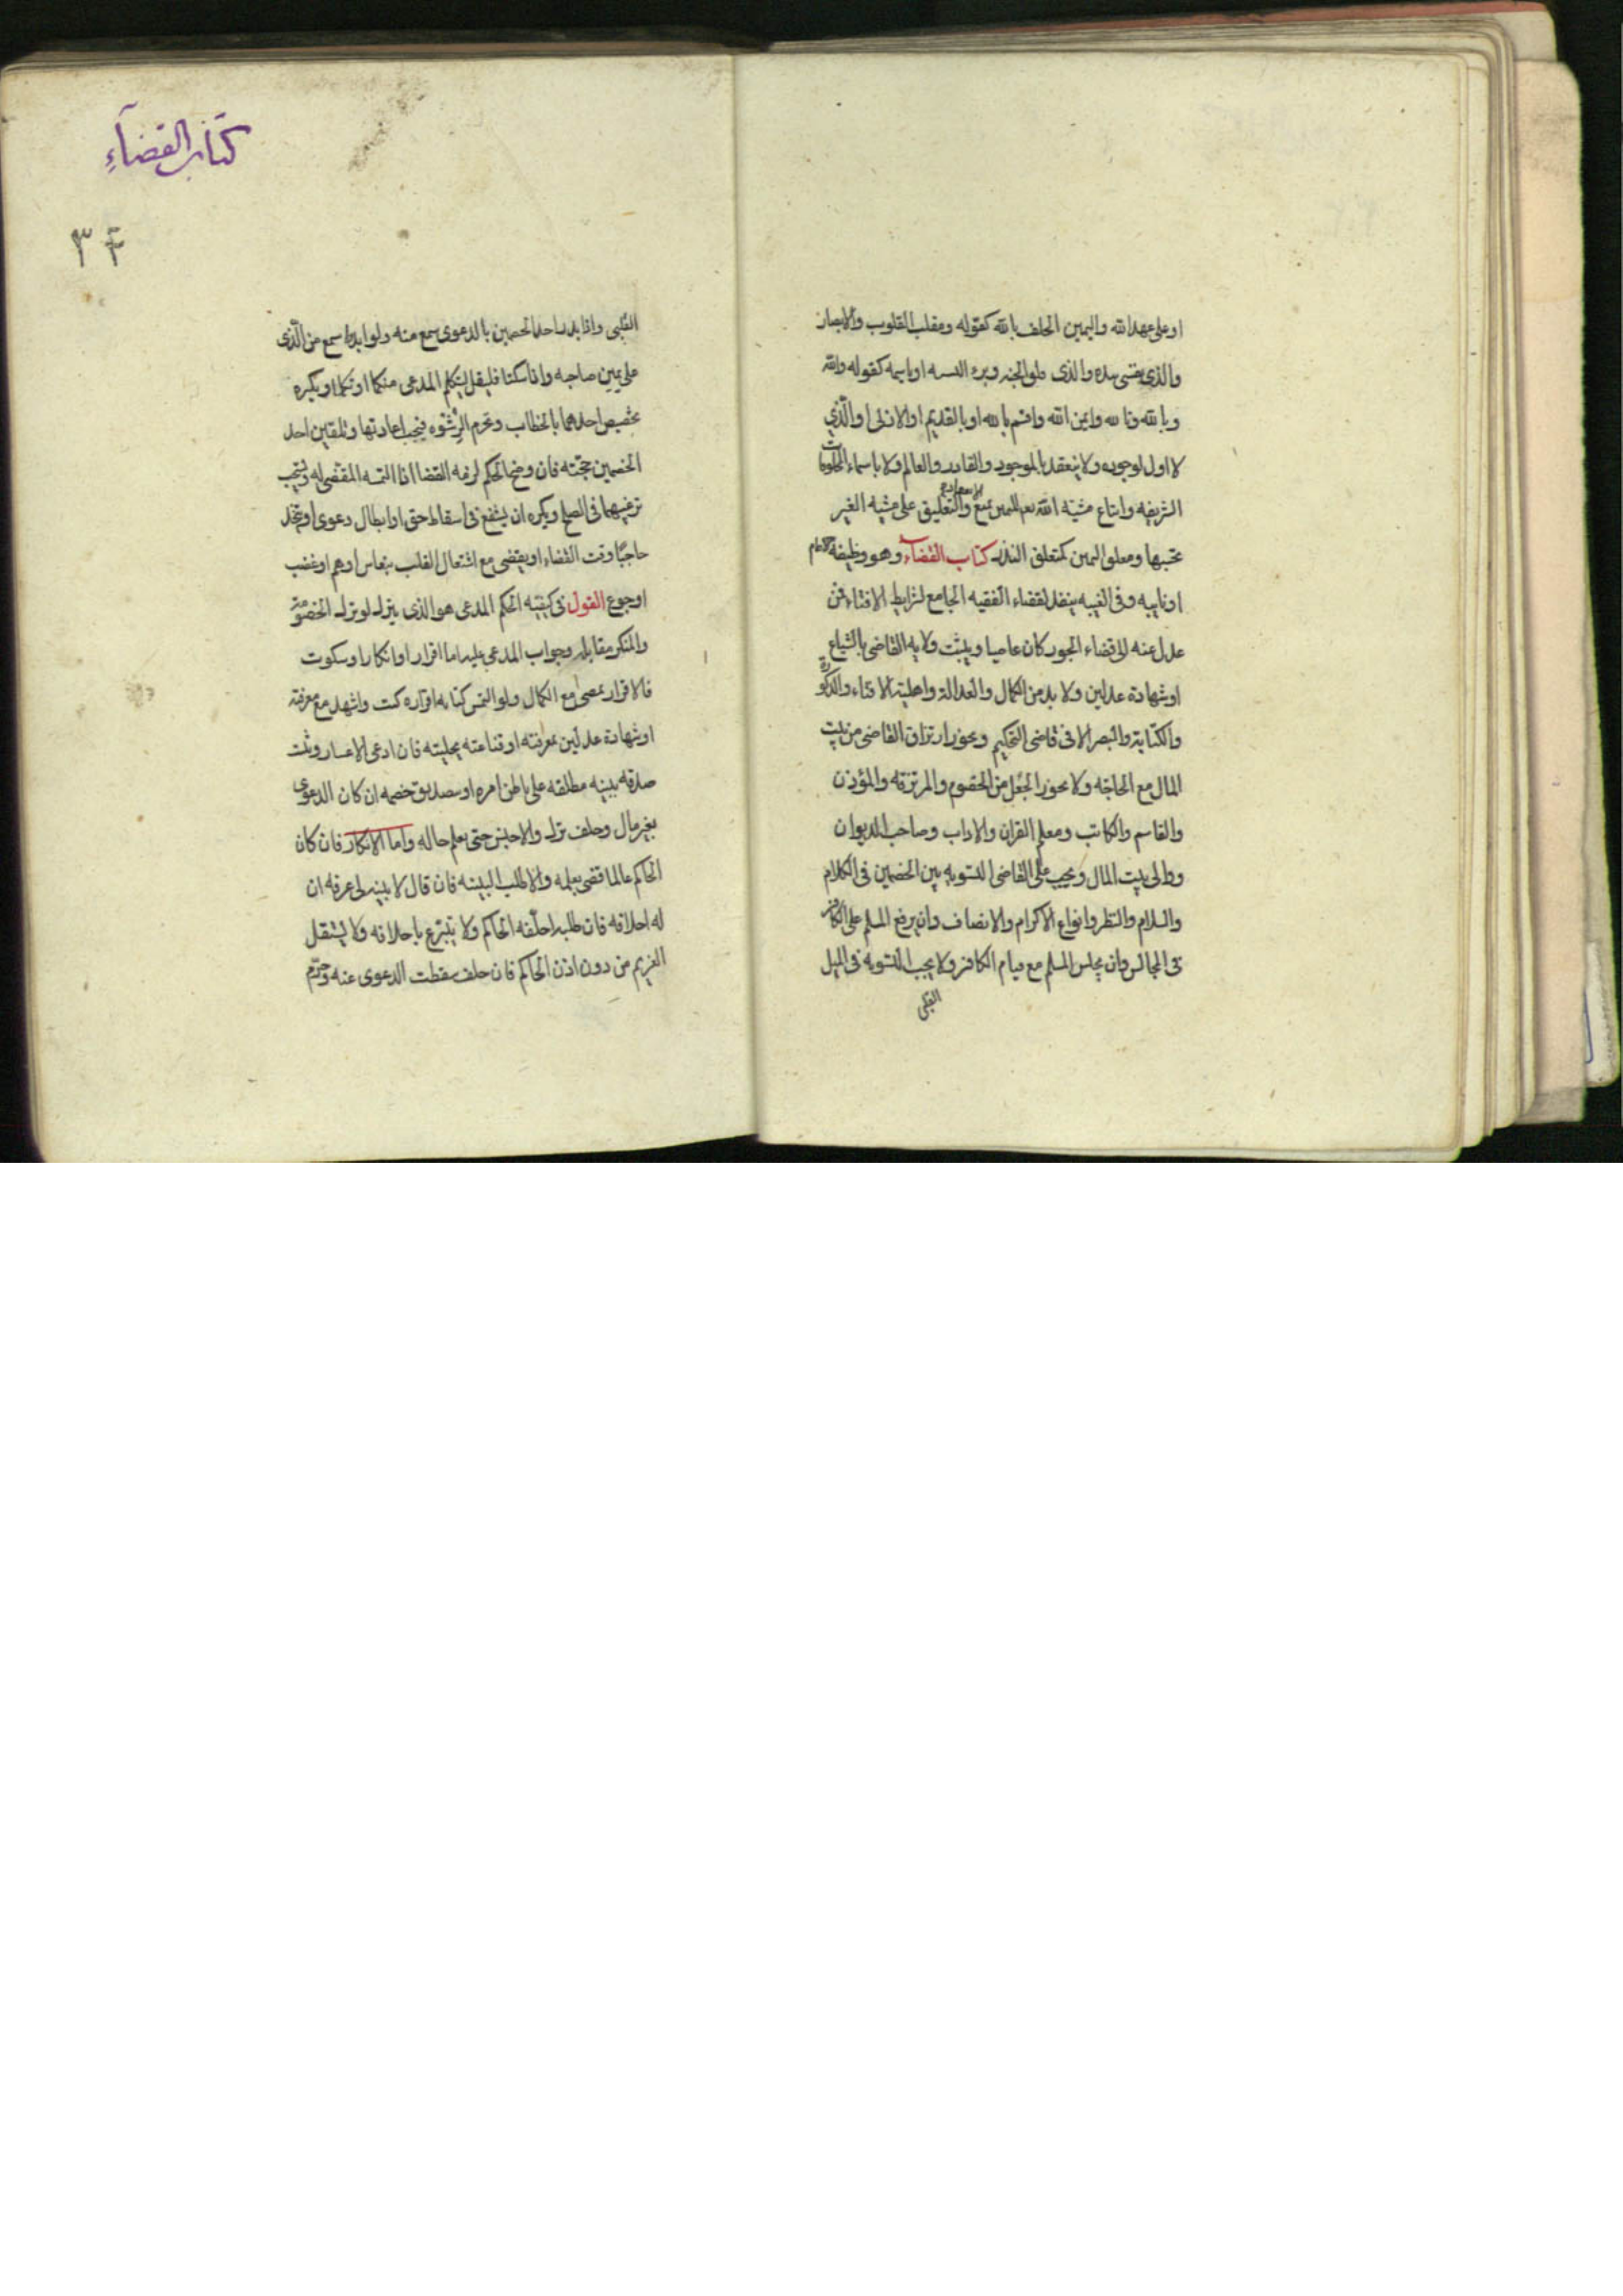 او على عهد الله واليمين الحلف بالله كقوله ومقلب القلوب والابصار
والذى نفسى بيده والذى فلق الحبه وبرء النسمه او باسمه كقوله والله
وبالله وتالله وايمن الله واقسم بالله او بالقديم او الازلى او الذي
لا اول لوجوده ولا ينعقد بالموجود والقادر والعالم ولا باسماء المخلوقات
الشريفه واتباع مشيّة الله لليمين يمنع الانعقاد والتعليق على مشيه الغير
بحبسها ومتعلق اليمين كمتعلق النذر كتاب القضاء وهو وظيفه الامام
او نايبه وفى الغيبه ينفذ قضاء الفقيه الجامع لشرايط الافتاء فمن
عدل عنه الى قضاء الجور كان عاصيا ويثبت ولايه القاضى بالشياع
او شهادة عدلين ولا بد من الكمال والعدالة واهلية الافتاء والذكورة
والكتابة والبصر الا فى قاضى التحكيم ويجوز ارتزاق القاضى من بيت
المال مع الحاجه ولا يجوز الجُعل من الخصوم والمرتزقه والمؤذن
والقاسم والكاتب ومعلم القران والاداب وصاحب الديوان
ووالى بيت المال ويجب على القاضى التسويه بين الخصمين فى الكلام
والسلام والنظر وانواع الاكرام والانصاف وان يرفع المسلم على الكافر
فى المجالس وان يجلس المسلم مع قيام الكافر ولا يجب التسويه فى الميل
القلبى
كتاب القضآءِ
٣٤
القلبى واذا بدر احد الخصمين بالدعوى سمع منه ولو ابتدرا سمع من الّذى
على يمين صاحبه واذا سكتا فليقل ليتكلم المدعى منكما او تكلما ويكره
تخصيص احدهما بالخطاب وتحرم الرِشْوه فيجب اعادتها وتلقين احد
الخصمين حجّته فان وضح الحكم لزمه القضا اذا التمسه المقضى له ويستحب
ترغيبهما فى الصلح ويكره ان يشفع فى اسقاط حق او ابطال دعوى او يتخذ
حاجبًا وقت القضاء او يقضى مع اشتغال القلب بنعاس او هم او غضب
او جوع القول فى كيفيّه الحكم المدعى هو الذى يترك لو ترك الخصومة
والمنكر مقابله وجواب المدعى عليه اما اقرار او انكار او سكوت
فالاقرار يمضى مع الكمال ولو التمس كتابه اقراره كتب واشهد مع معرفته
او شهادة عدلين بمعرفته او قناعته بحليته فان ادعى الاعسار وثبت
صدقه ببينه مطلقه على باطن امره او بتصديق خصمه ان كان الدعوى
بغير مال وحلف ترك والا حبس حتى يعلم حاله واما الانكار فان كان
الحاكم عالما قضى بعلمه والا طلب البينه فان قال لا بينه لى عرفه ان
له احلافه فان طلبه احلفه الحاكم ولا يتبرع باحلافه ولا يستقل
الغريم من دون اذن الحاكم فان حلف سقطت الدعوى عنه وحرّم